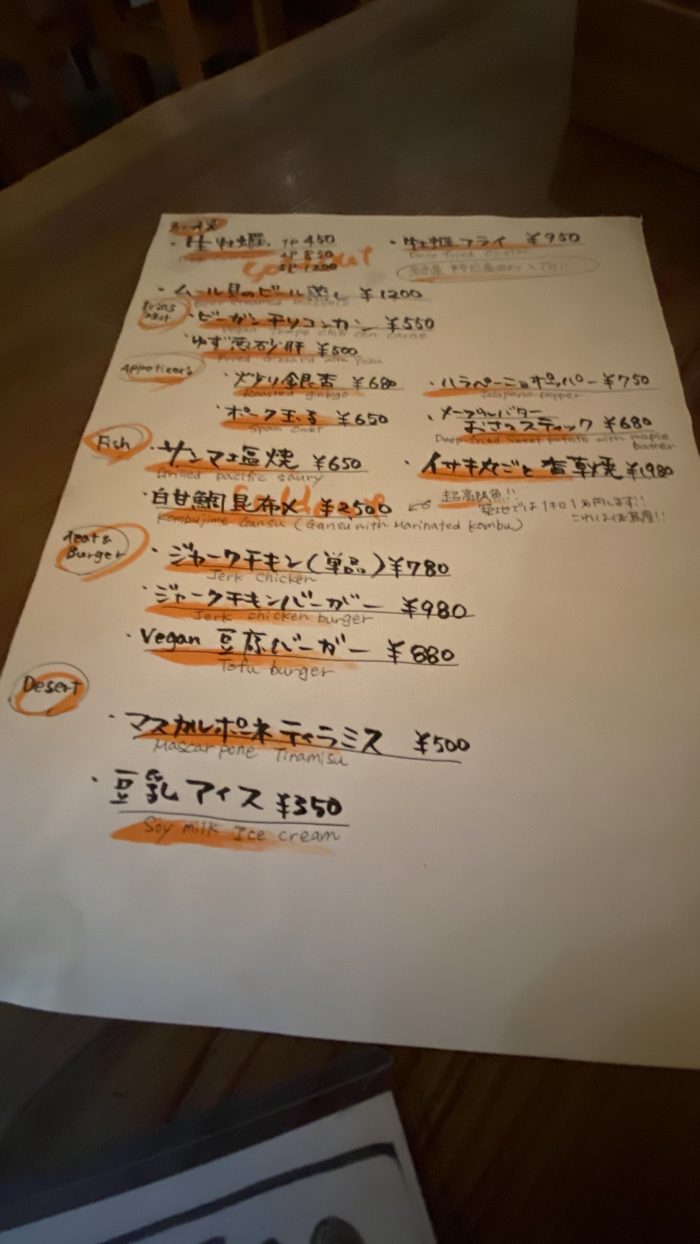 ・生牡蠣 1P 450
・牡蠣フライ ¥950
Deep fried Oyster
3P 1200
Sold out
・ムール貝のビール蒸し ¥1200
・ビーガンチリコンカン ¥550
・ゆず塩砂肝 ¥500
Appetizers
・炙り銀杏 ¥680
Roasted ginkgo
・ハラペーニョポッパー ¥750
Jalapeno pepper
・ポーク玉子 ¥650
・メープルバター
おさつスティック ¥680
Deep fried sweet potato with maple
butter
Fish
・サンマ塩焼 ¥650
Grilled pacific saury
・イサキ丸ごと香草焼 ¥1980
・白甘鯛昆布〆 ¥2500
Kombujime Gansu (Gansu with Marinated kombu)
超高級魚!!
Meat &
Burger
・ジャークチキン(単品) ¥780
Jerk chicken
・ジャークチキンバーガー ¥980
Jerk chicken burger
・Vegan 豆腐バーガー ¥880
Tofu burger
Desert
・マスカルポーネティラミス ¥500
Mascarpone Tiramisu
・豆乳アイス ¥350
Soy milk Ice cream